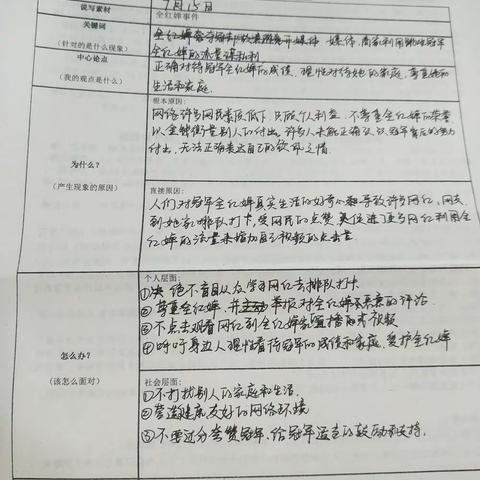 7月15日
说写素材
全红婵事件
关键词
(针对的是什么现象)
全红婵的流量谋私利
中心论点
(我的观点是什么)
正确对待冠军全红婵的成绩,理性对待她的家庭,尊重她的
生活和家庭.
根本原因:
网络许多网民素质低下,只顾个人利益,不尊重全红婵的荣誉
以金钱衡量别人的付出,许多人未能正确认识冠军背后的努力
付出,无法正确表达自己的钦佩之情.
为什么?
(产生现象的原因)
直接原因:
人们对冠军全红婵真实生活的好奇 导致许多网红,网友
到她家排队打卡,受网民的点赞 促进了更多网红利用全
红婵的流量来增加自己视频的点击量.
个人层面:
① 绝不盲目从众学习网红去排队打卡
②尊重全红婵,并 举报对全红婵不 的评论
③不点击观看网红到全红婵家直播的 视频
④呼吁身边人理性看待冠军的成绩和家庭,爱护全红婵
怎么办?
(该怎么面对)
社会层面:
①不打扰别人的家庭和生活.
②营造健康友好的网络环境
③不要过分夸赞冠军,给冠军适当的鼓励和支持.